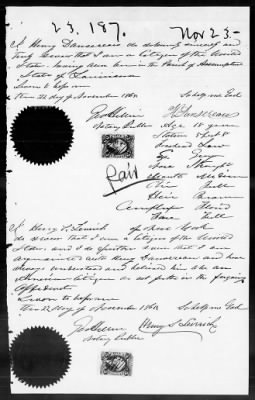 23.187. Nov 23-
I Henry Dansereau do solemnly swear
that I am a Citizen of the United
States, having been born in the Parish of Assumption
State of Louisiana
Sworn to before me So help me God
this 22 day of November 186
Notary Public H Dansereau
Age 18 years
Stature 5 feet 8
Forehead Low
Eye Grey
Nose Straight
Mouth Medium
Chin Full
Hair Brown
Complexion
Face Full
Paid
I Henry S. of New York
do swear that I am a citizen of the United
States, and I do further swear that I am
acquainted with Henry Dansereau and have
always understood and believed him to be an
American Citizen as set forth in the foregoing
Affidavit
Sworn to before me So help me God
this 22 Day of November 186
Henry S.
Notary Public